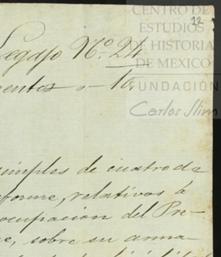 CENTRO DE
ESTUDIOS
DE HISTORIA
DE MEXICO
FUNDACIÓN
Carlos Slim
22
Legajo Nº 24
mentos 10.
simples de cuatro de
forme, relativos á
ocupacion del Pre-
, sobre su arma-